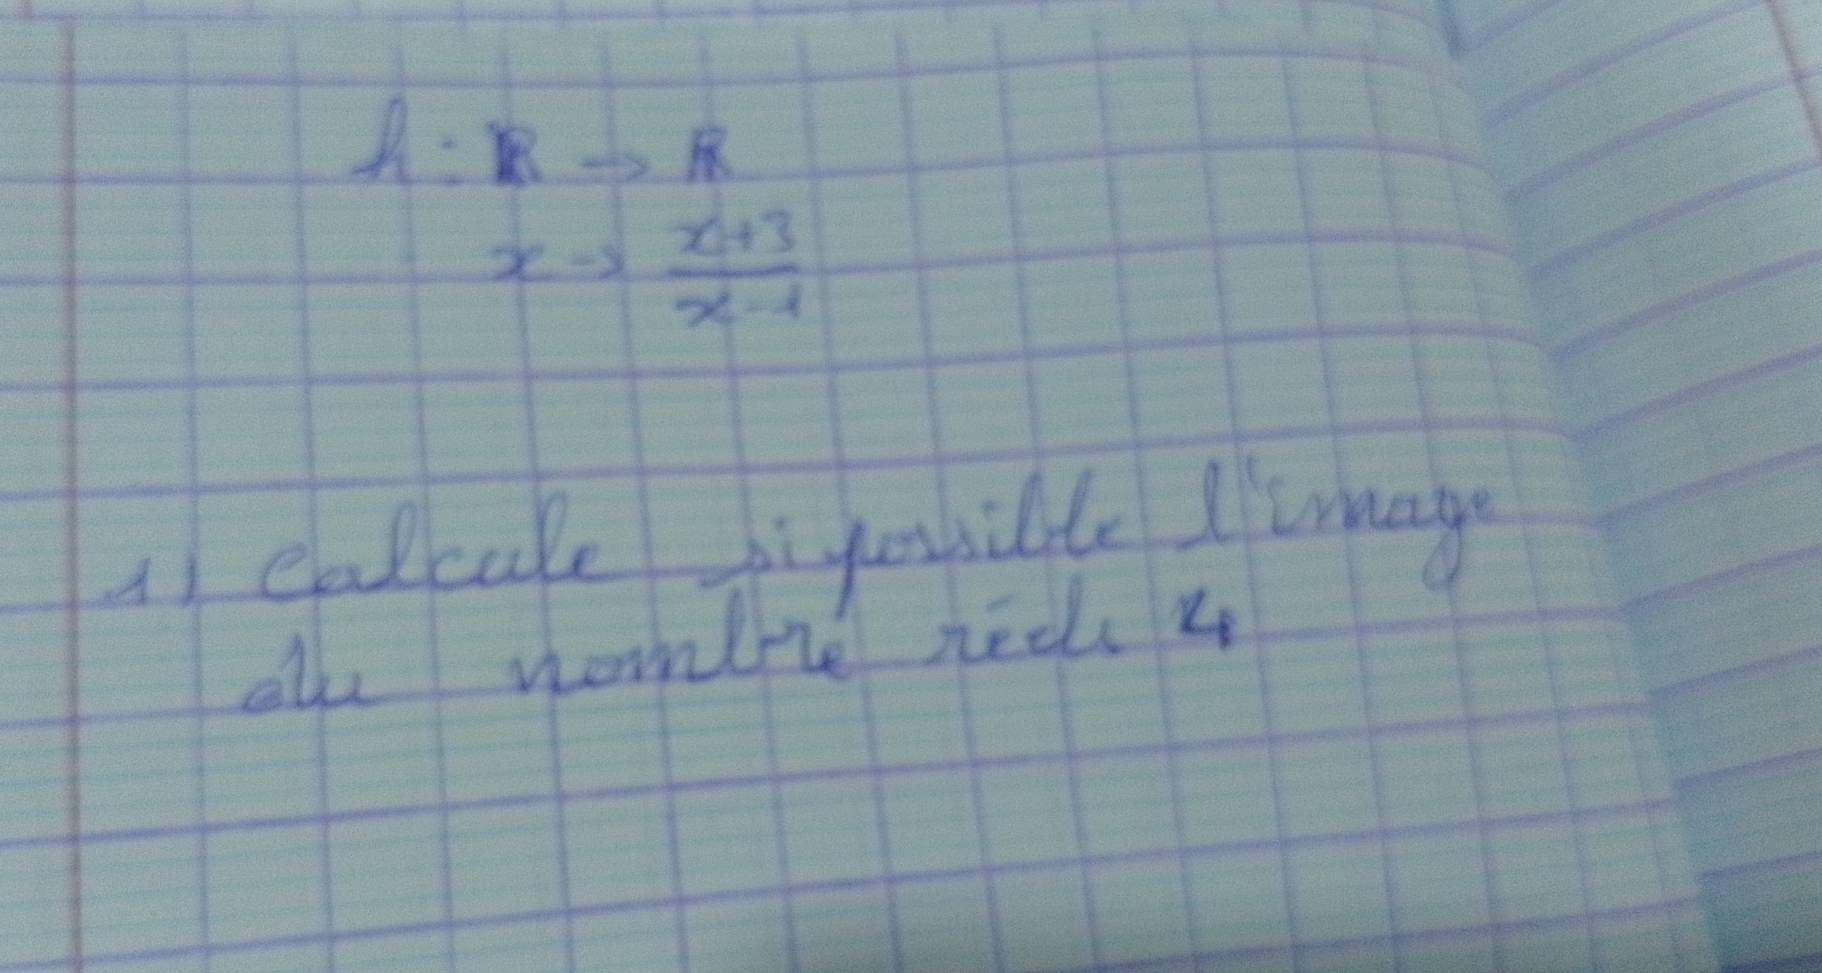 h : ℝ → ℝ
x → x+3 / x-1
1) Calcule si possible l'image
du nombre réels 4